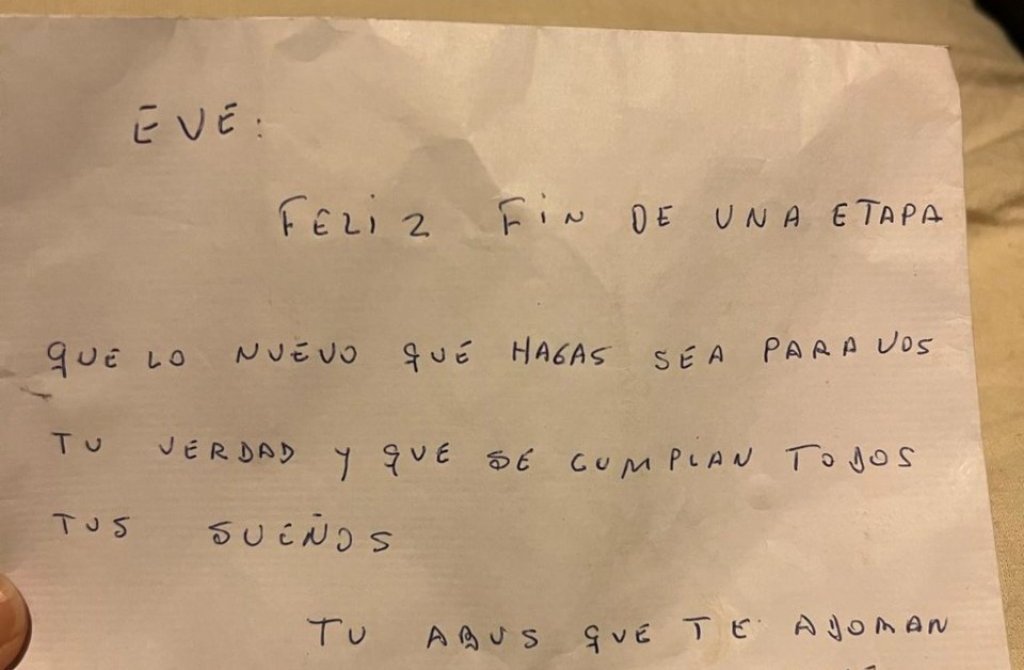 EVE:
FELIZ FIN DE UNA ETAPA
QUE LO NUEVO QUE HAGAS SEA PARA VOS
TU VERDAD Y QUE SE CUMPLAN TODOS
TUS SUEÑOS
TU ABUS QUE TE ADOMAN